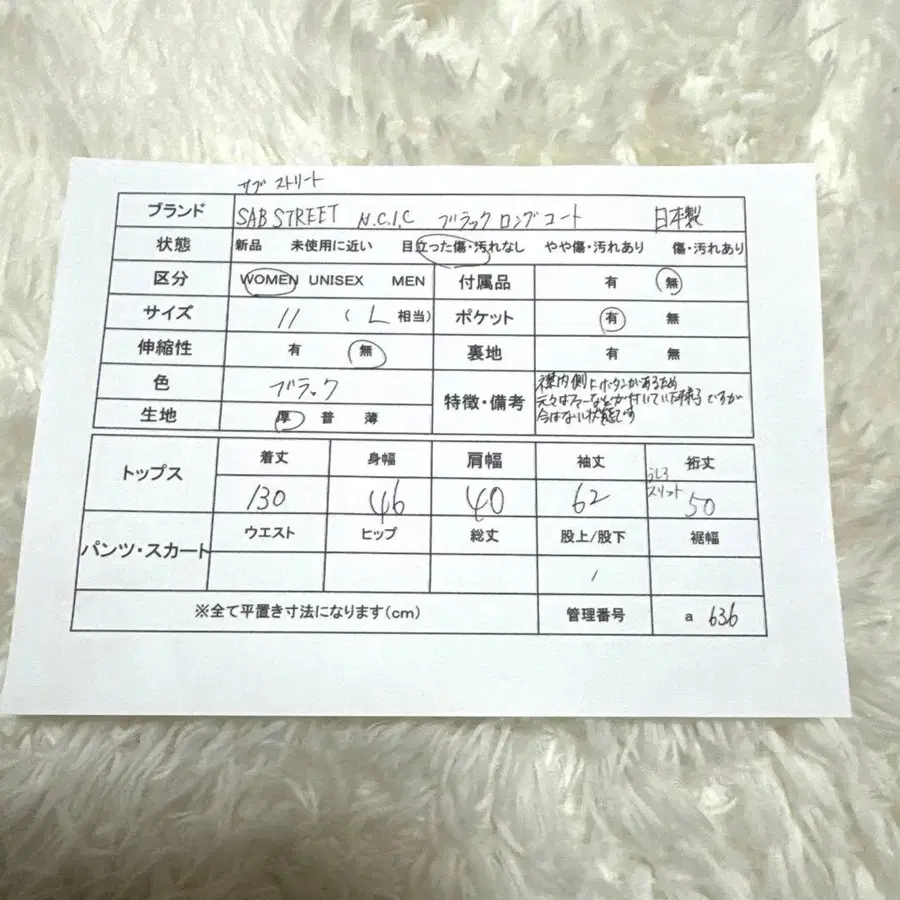 サブ ストリート
ブランド SAB STREET N.C.I.C ブラック ロング コート 日本製
状態 新品 未使用に近い 目立った傷・汚れなし やや傷・汚れあり 傷・汚れあり
区分 WOMEN UNISEX MEN 付属品 有 無
サイズ 11 ( L 相当) ポケット 有 無
伸縮性 有 無 裏地 有 無
色 ブラック 特徴・備考 襟内側にボタンがあるため
元々はファーなどが付いていた様子ですが
今はない状態です
生地 厚 普 薄
トップス 着丈 身幅 肩幅 袖丈 裄丈
130 46 40 62 うしろ スリット 50
パンツ・スカート ウエスト ヒップ 総丈 股上/股下 裾幅
/
※全て平置き寸法になります(cm) 管理番号 a 636